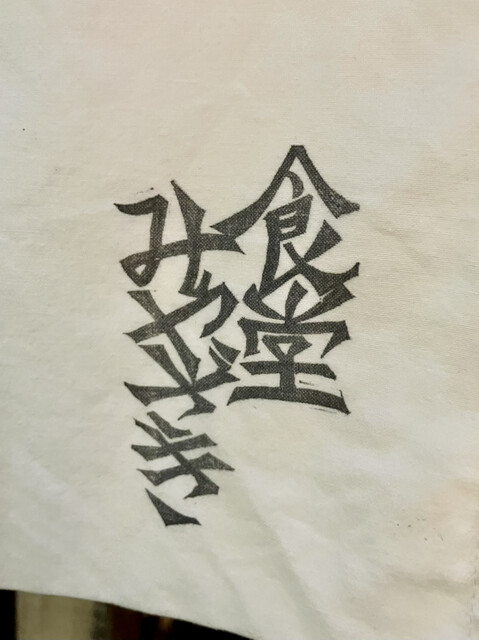 食堂
みやざき